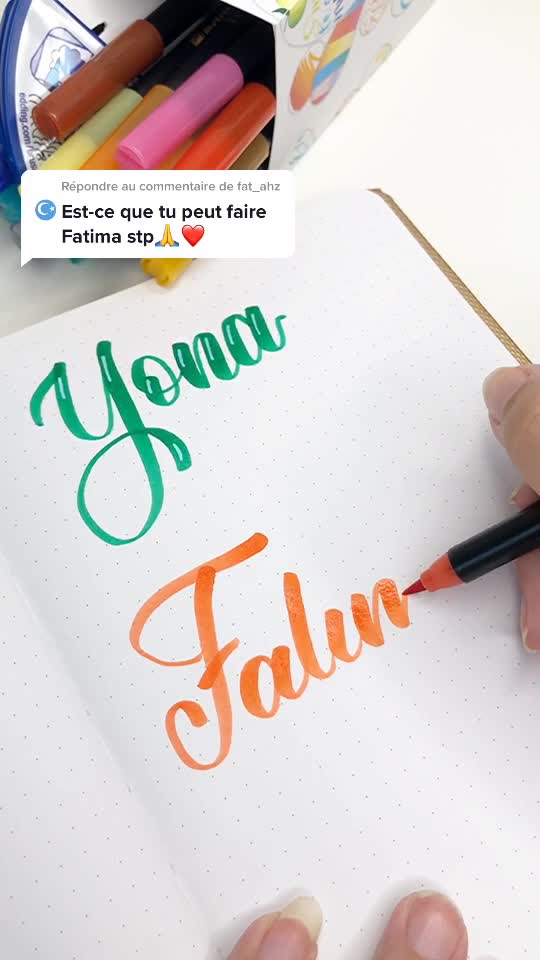 edding.com
Répondre au commentaire de fat_ahz
Est-ce que tu peut faire
Fatima stp🙏❤️
Yona
Falin